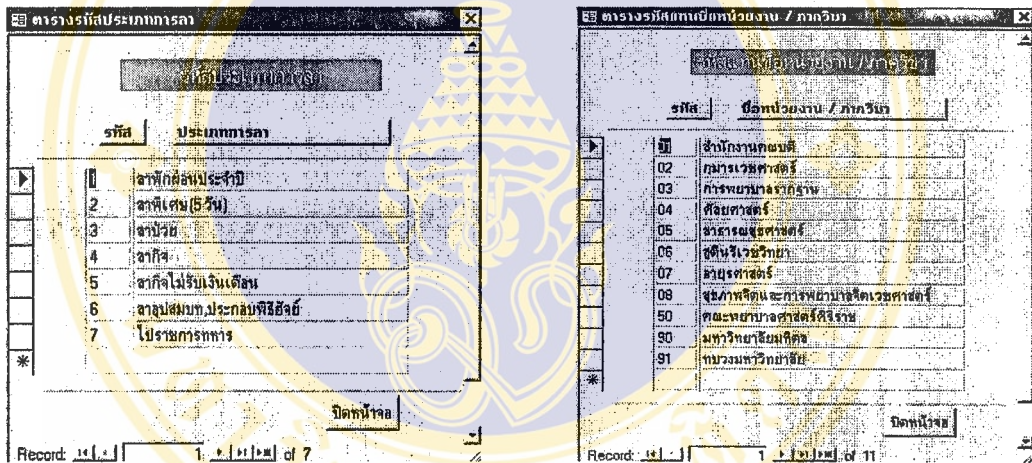 ตารางรหัสประเภทการลา
รหัสประเภทการลา
รหัส ประเภทการลา
1 ลาพักผ่อนประจำปี
2 ลาพิเศษ(5 วัน)
3 ลาป่วย
4 ลากิจ
5 ลากิจไม่รับเงินเดือน
6 ลาอุปสมบท,ประกอบพิธีฮัจย์
7 ไปราชการทหาร
ปิดหน้าจอ
Record: 1 of 7
ตารางรหัสแทนชื่อหน่วยงาน / ภาควิชา
รหัสแทนชื่อหน่วยงาน / ภาควิชา
รหัส ชื่อหน่วยงาน / ภาควิชา
01 สำนักงานคณบดี
02 กุมารเวชศาสตร์
03 การพยาบาลรากฐาน
04 ศัลยศาสตร์
05 สาธารณสุขศาสตร์
06 สูตินรีเวชวิทยา
07 อายุรศาสตร์
08 สุขภาพจิตและการพยาบาลจิตเวชศาสตร์
50 คณะพยาบาลศาสตร์ศิริราช
90 มหาวิทยาลัยมหิดล
91 ทบวงมหาวิทยาลัย
ปิดหน้าจอ
Record: 1 of 11